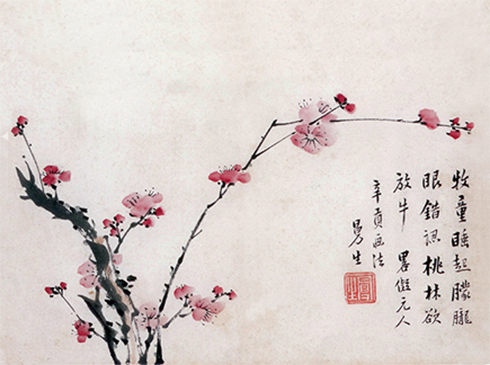 牧童睡起朦朧
眼錯認桃林欲
放牛 畧倣元人
辛貢画法
曼生